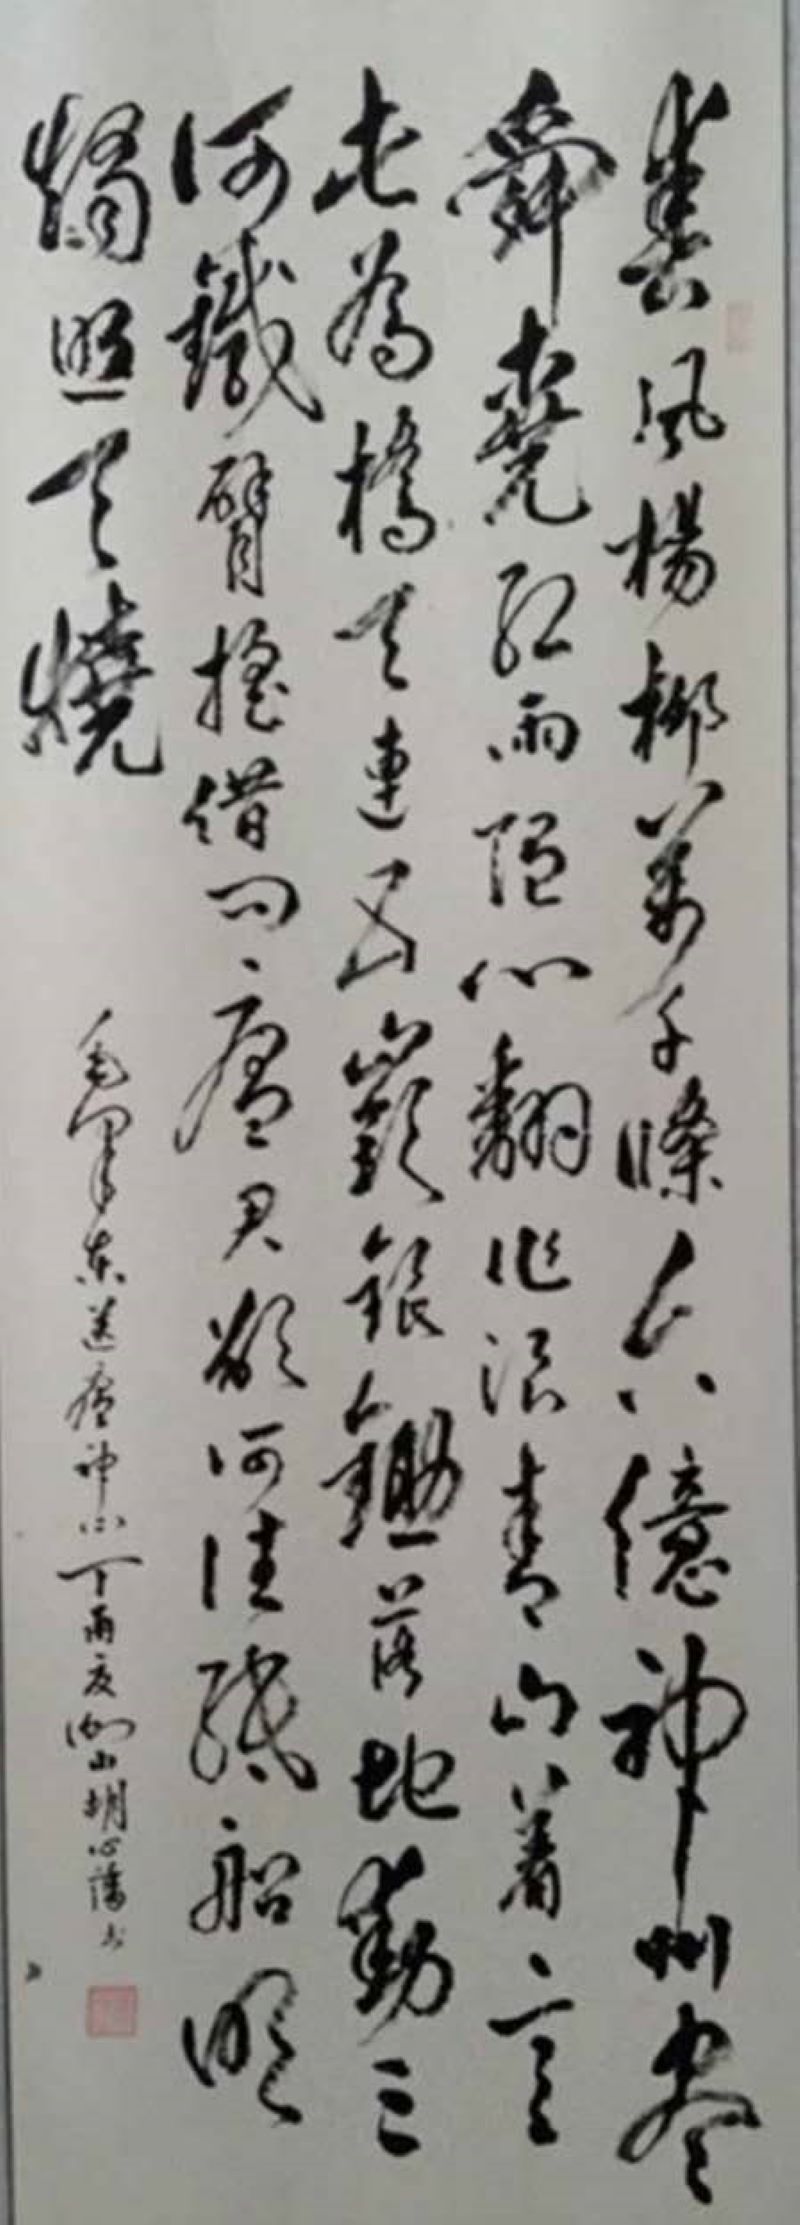 春風楊柳萬千條六億神州盡
舜堯紅雨隨心翻作浪青山着意
化為橋天連五嶺銀鋤落地動三
河鐵臂搖借問瘟君欲何往紙船明
燭照天燒
毛澤東送瘟神 丁酉夏 山胡心 书